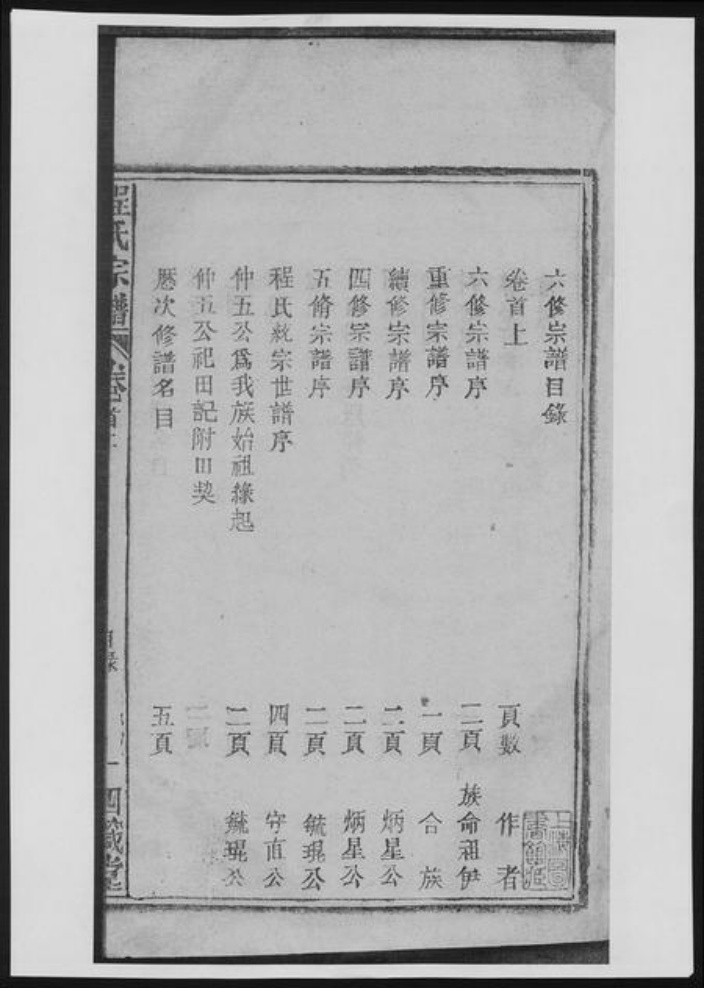 六修宗譜目錄
卷首上 頁數 作者
六修宗譜序 二頁 族命祖伊
重修宗譜序 一頁 合族
續修宗譜序 二頁 炳星公
四修宗譜序 二頁 炳星公
五脩宗譜序 二頁 毓琨公
程氏統宗世譜序 四頁 守直公
仲五公爲我族始祖緣起 二頁 毓琨公
仲五公祀田記附田契 二頁
歷次修譜名目 五頁
程氏宗譜 卷首上 目錄 一 四箴堂